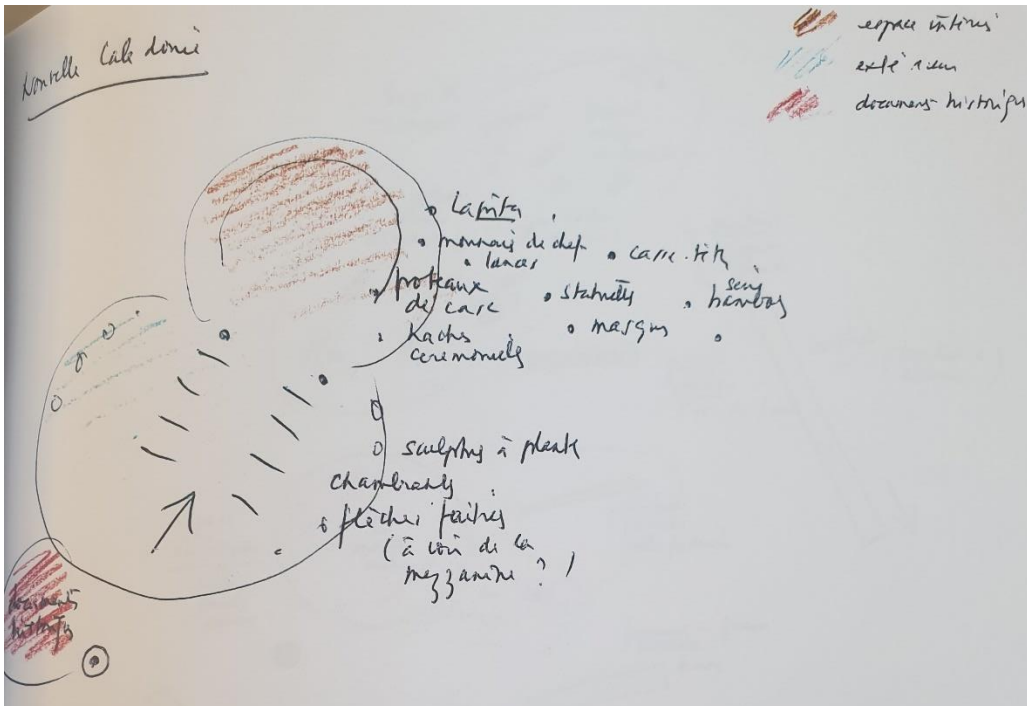 Nouvelle Calédonie
espace intérieur
extérieur
documents historiques
Lapita
monnaie de chef
lances
casse-tête
poteaux
de case
statuettes
bambous
haches
cérémonielles
masques
sculptures à planter
chambranles
flèches faîtières
(à voir de la
mezzanine ? )
documents
historiques